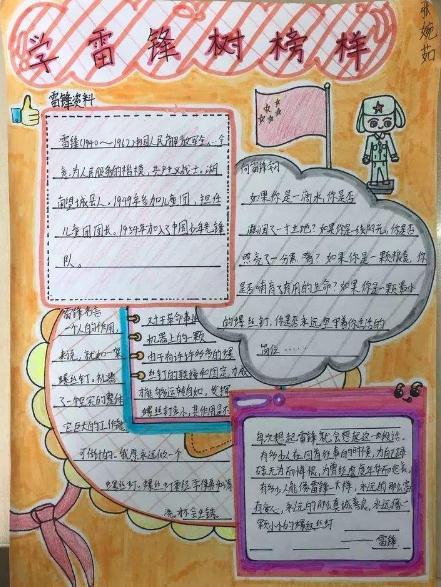 学雷锋树榜样
张婉茹
雷锋资料
雷锋(1940～1962)中国人民解放军，一个
为人民服务的楷模，共产主义战士，湖
望城县人，1949年参加儿童团，担任
儿童团团长。1954年加入了中国少年先锋
队。
向雷锋学习
如果你是一滴水，你是否
滋润了一寸土地？如果你是一线阳光，你是否
照亮了一分黑暗？如果你是一颗粮食，你
是否哺育了有用的生命？如果你是一颗
的螺丝钉，你是否永远坚守着你生活的
岗位……
雷锋名言
一个人的作用，
对于革命事业
来说，就如一架
机器上的一颗
螺丝钉。机器
由于有许许多多的螺
丝钉的联接和固定，才成
了一个坚实的整体
能够运转自如，发挥
它巨大的工作能
螺丝钉虽小，其作用是不
可估量的。我愿永远做一个
螺丝钉。螺丝钉要经常保养和清
洗，才不会生锈。
每次想起雷锋就会想起这一段话。
有多少人
有多少人能像雷锋一样，永远的那么富
有爱心，永远的那么真诚善良，永远像一
颗小小的螺丝钉
雷锋